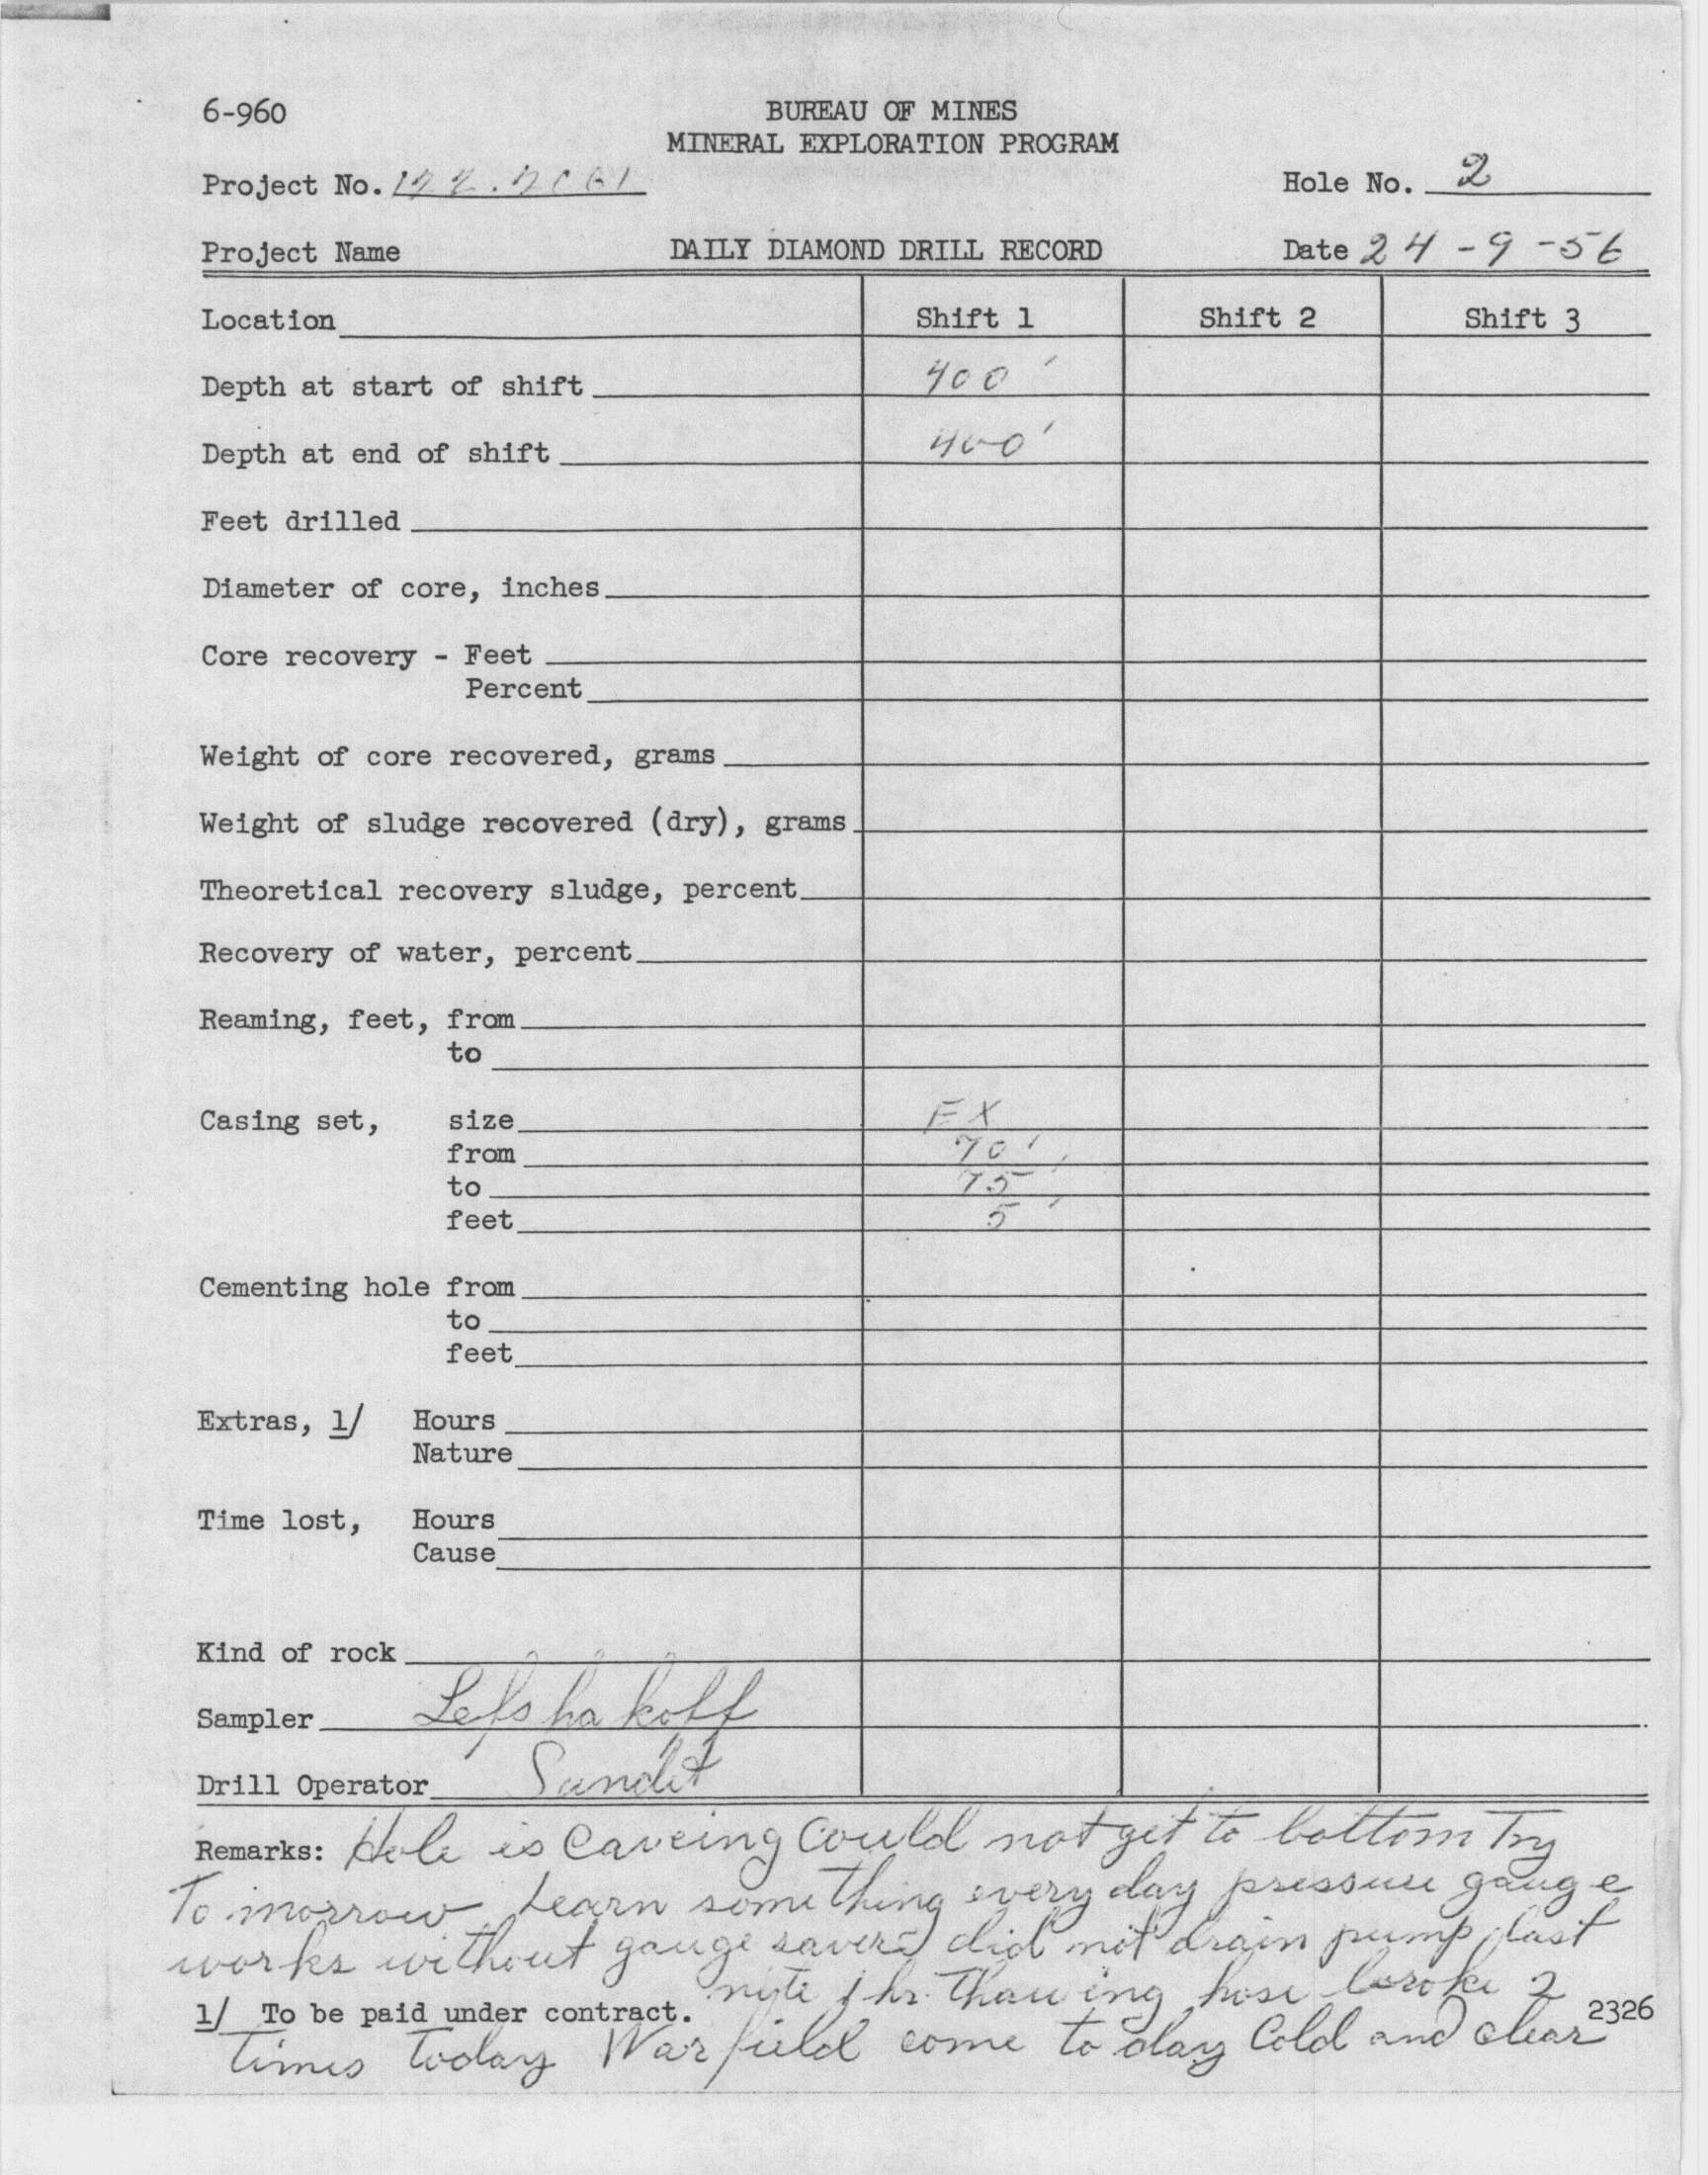 6-960
BUREAU OF MINES
MINERAL EXPLORATION PROGRAM
Project No.
Hole No. 2
Project Name
DAILY DIAMOND DRILL RECORD
Date 24-9-56
Location Shift 1 Shift 2 Shift 3
Depth at start of shift 400'
Depth at end of shift 400'
Feet drilled
Diameter of core, inches
Core recovery - Feet
Percent
Weight of core recovered, grams
Weight of sludge recovered (dry), grams
Theoretical recovery sludge, percent
Recovery of water, percent
Reaming, feet, from
to
Casing set, size EX
from 70'
to 75'
feet 5'
Cementing hole from
to
feet
Extras, 1/ Hours
Nature
Time lost, Hours
Cause
Kind of rock
Sampler
Drill Operator
Remarks: Hole is Caveing Could not get to bottom Try
To morrow Learn something every day pressure gauge
works without gauge saver did not drain pump last
nite 1 hr. Thawing hose broke 2
1/ To be paid under contract.
2326
times today Warfield come to day Cold and clear